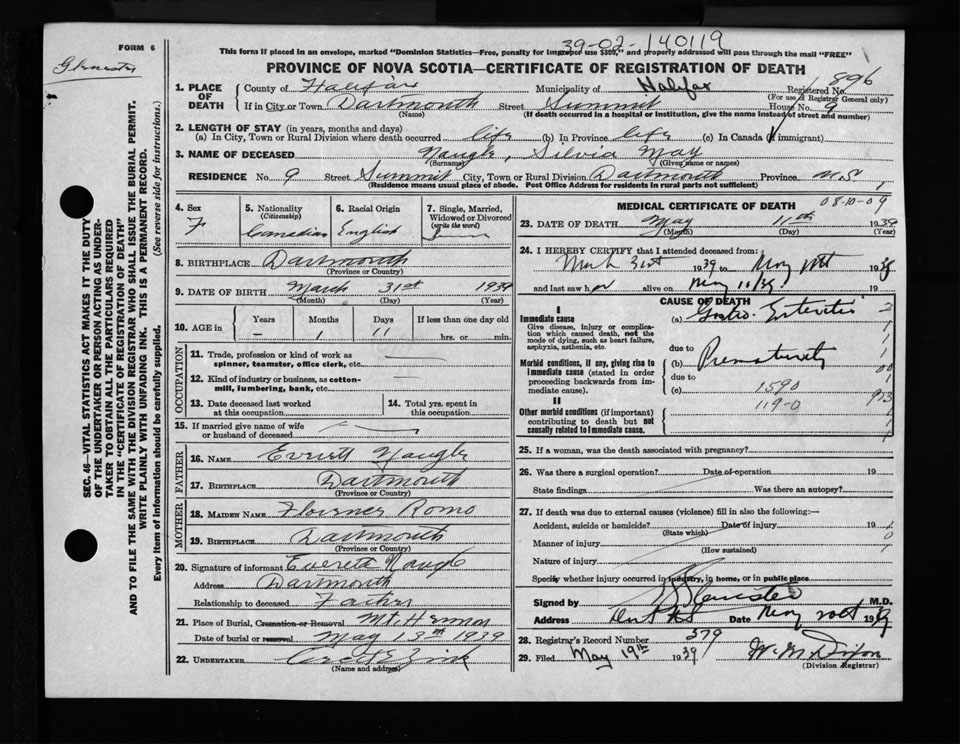 39-02-140119
FORM 6
This form if placed in an envelope, marked "Dominion Statistics—Free, penalty for improper use $300," and properly addressed will pass through the mail "FREE"
PROVINCE OF NOVA SCOTIA—CERTIFICATE OF REGISTRATION OF DEATH
896
1. PLACE OF DEATH County of Halifax Municipality of Halifax Registered No.
(For use of Registrar General only)
If in City or Town Dartmouth Street Summit House No. 9
(Name) (If death occurred in a hospital or institution, give the name instead of street and number)
2. LENGTH OF STAY (in years, months and days)
(a) In City, Town or Rural Division where death occurred life (b) In Province life (c) In Canada (if immigrant)
3. NAME OF DECEASED Naugle, Silvia May
(Surname) (Given name or names)
RESIDENCE No. 9 Street Summit City, Town or Rural Division Dartmouth Province N.S.
(Residence means usual place of abode. Post Office Address for residents in rural parts not sufficient)
4. Sex F
5. Nationality (Citizenship) Canadian
6. Racial Origin English
7. Single, Married, Widowed or Divorced (write the word)
8. BIRTHPLACE Dartmouth
(Province or Country)
9. DATE OF BIRTH March 31st 1939
(Month) (Day) (Year)
10. AGE in Years Months Days If less than one day old
— 1 11 hrs. or min.
OCCUPATION
11. Trade, profession or kind of work as spinner, teamster, office clerk, etc.
12. Kind of industry or business, as cotton-mill, lumbering, bank, etc.
13. Date deceased last worked at this occupation
14. Total yrs. spent in this occupation
15. If married give name of wife or husband of deceased
FATHER
16. NAME Everett Naugle
17. BIRTHPLACE Dartmouth
(Province or Country)
MOTHER
18. MAIDEN NAME Romo
19. BIRTHPLACE Dartmouth
(Province or Country)
20. Signature of informant Everett Naugle
Address Dartmouth
Relationship to deceased Father
21. Place of Burial, Cremation or Removal Mt. Hermon
Date of burial or removal May 13th 1939
22. UNDERTAKER
(Name and address)
MEDICAL CERTIFICATE OF DEATH 08-10-09
23. DATE OF DEATH May 11th 1939
(Month) (Day) (Year)
24. I HEREBY CERTIFY that I attended deceased from:
31st 1939 to May 1939
and last saw her alive on May 11/39 19
CAUSE OF DEATH
I
Immediate cause
Give disease, injury or complication which caused death, not the mode of dying, such as heart failure, asphyxia, asthenia, etc.
(a) Gastro-Enteritis
due to
Morbid conditions, if any, giving rise to immediate cause (stated in order proceeding backwards from immediate cause).
(b) Prematurity
due to
(c) 1590
119-0
II
Other morbid conditions (if important) contributing to death but not causally related to immediate cause.
25. If a woman, was the death associated with pregnancy?
26. Was there a surgical operation? Date of operation 19
State findings Was there an autopsy?
27. If death was due to external causes (violence) fill in also the following:—
Accident, suicide or homicide? Date of injury 19
(State which)
Manner of injury
(How sustained)
Nature of injury
Specify whether injury occurred in industry, in home, or in public place
Signed by M.D.
Address Date May 1939
28. Registrar's Record Number 379
29. Filed May 19th 1939 W. M. Dixon
(Division Registrar)
SEC. 46—VITAL STATISTICS ACT MAKES IT THE DUTY
OF THE UNDERTAKER OR PERSON ACTING AS UNDER-
TAKER TO OBTAIN ALL THE PARTICULARS REQUIRED
IN THE "CERTIFICATE OF REGISTRATION OF DEATH"
AND TO FILE THE SAME WITH THE DIVISION REGISTRAR WHO SHALL ISSUE THE BURIAL PERMIT.
WRITE PLAINLY WITH UNFADING INK. THIS IS A PERMANENT RECORD.
Every item of Information should be carefully supplied. (See reverse side for instructions.)